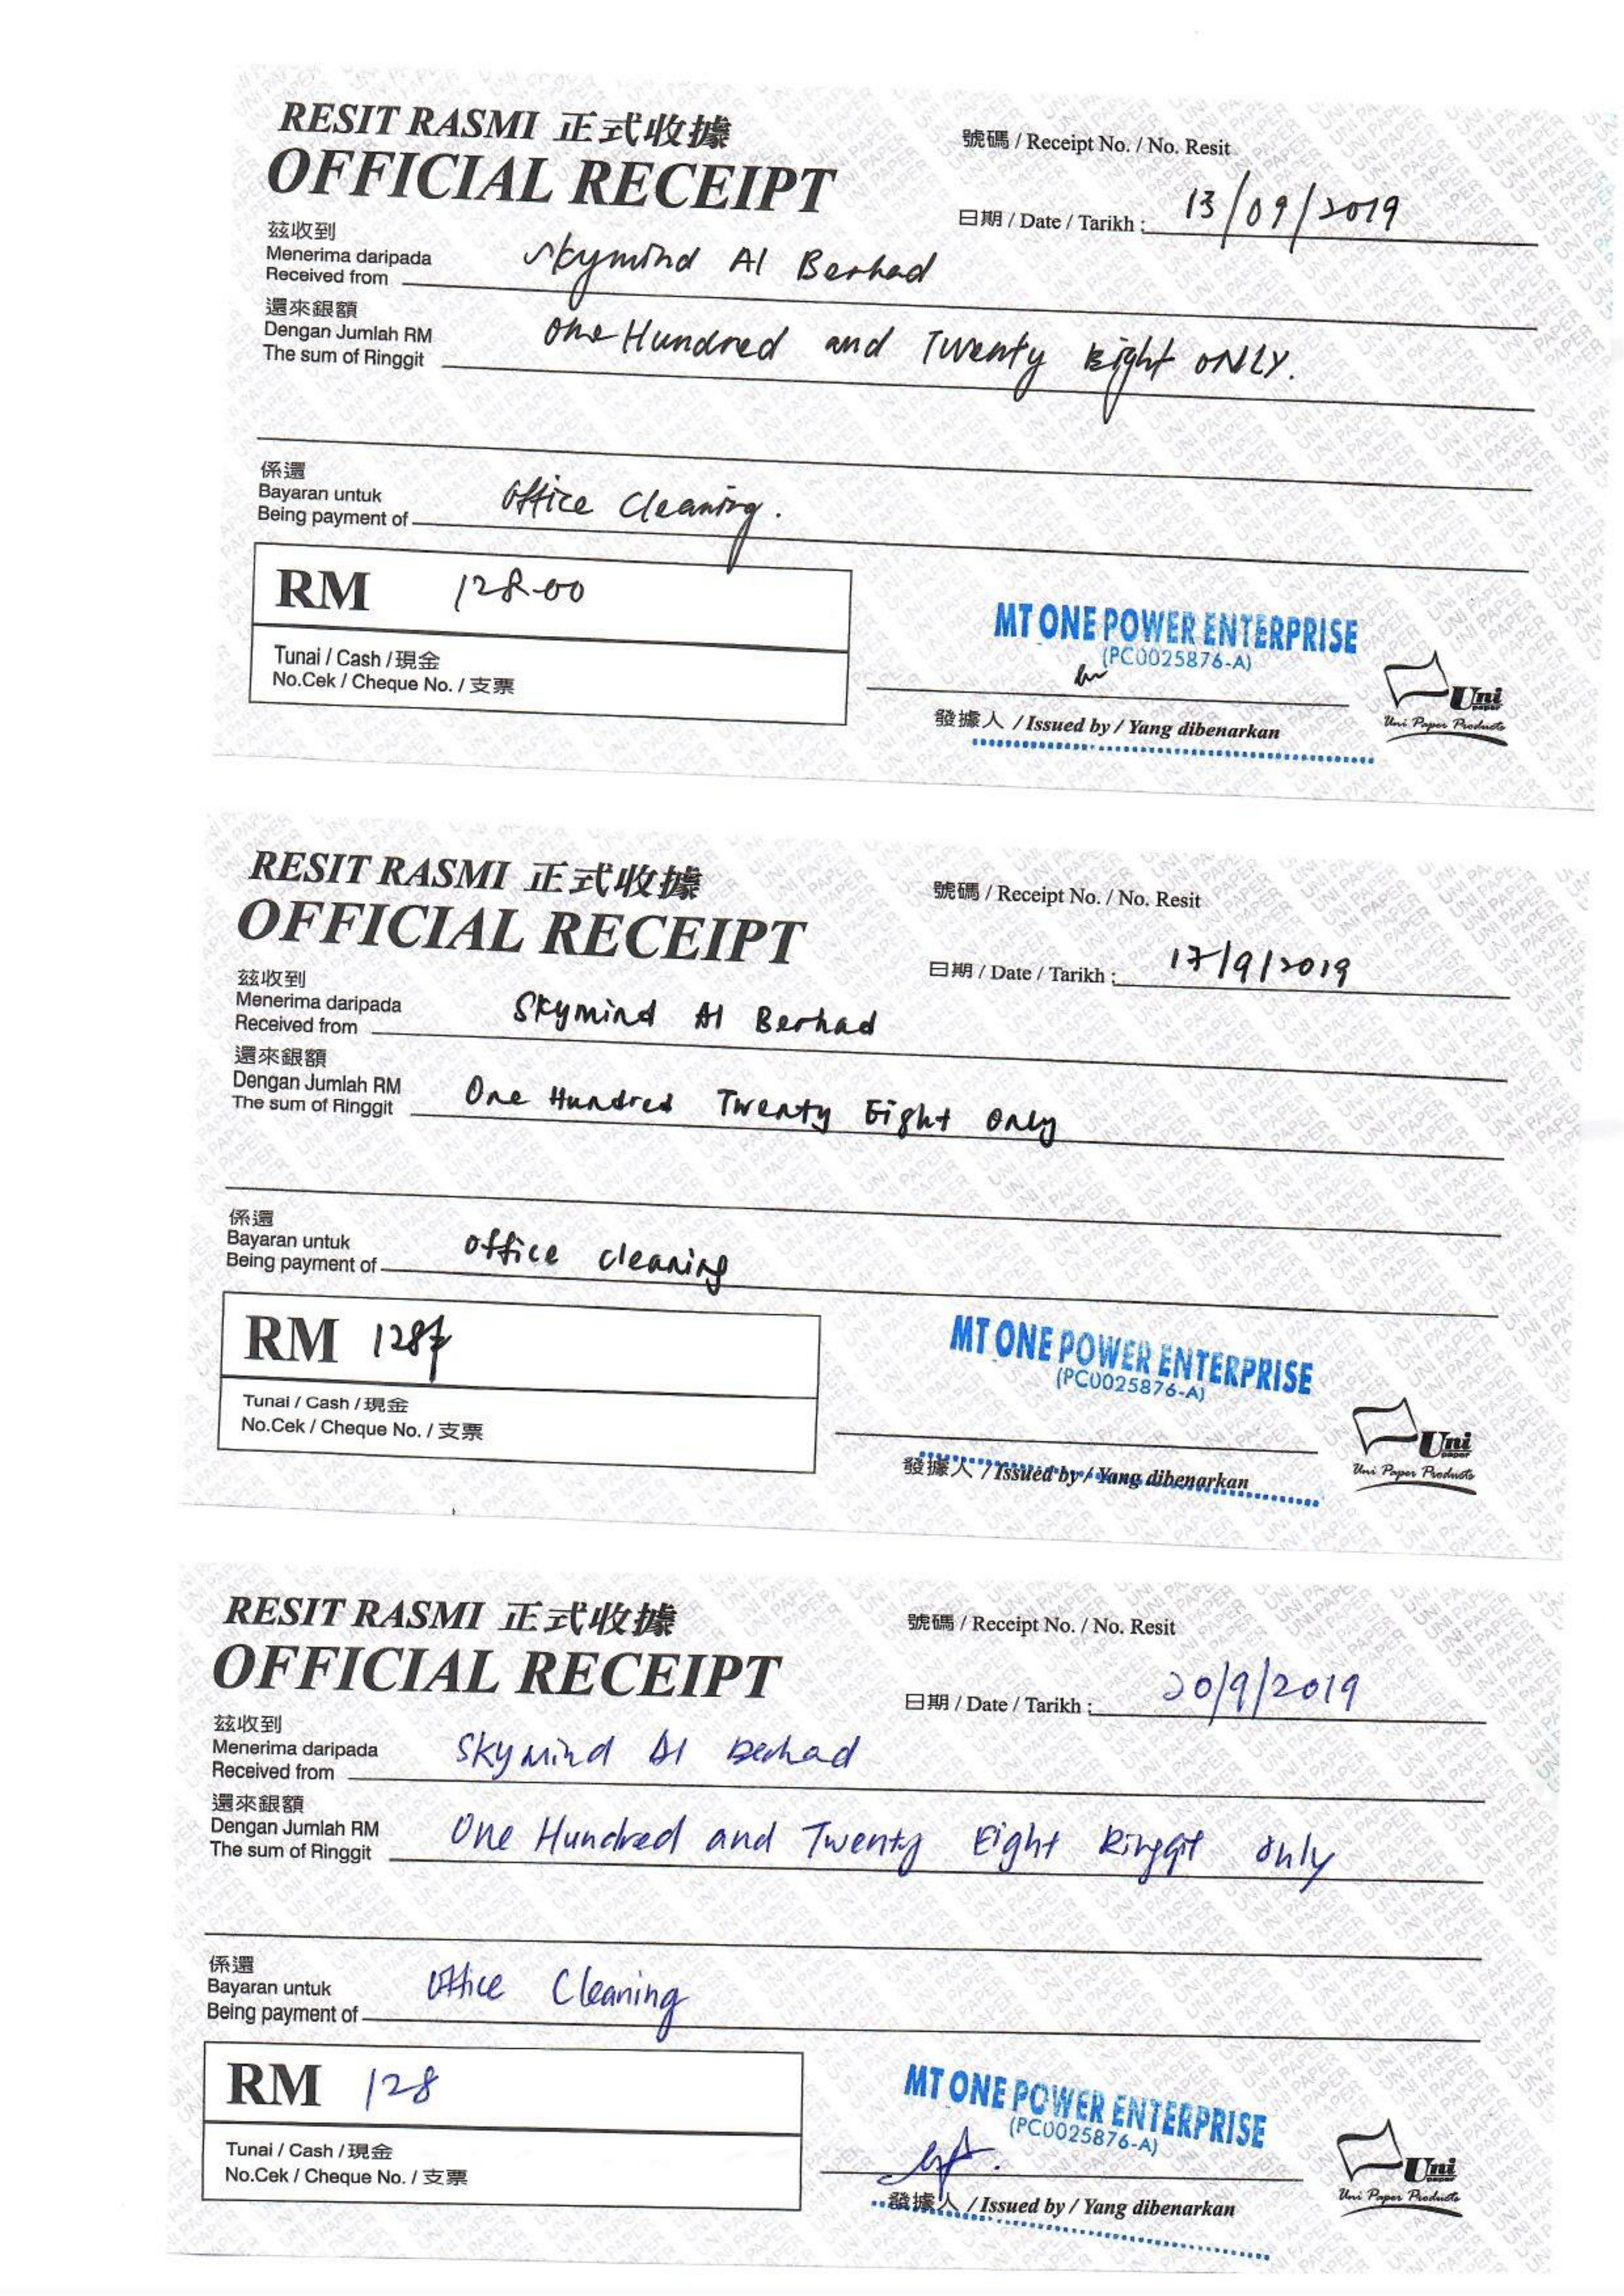 RESIT RASMI 正式收據
OFFICIAL RECEIPT
號碼 / Receipt No. / No. Resit
日期 / Date / Tarikh : 13/09/2019
茲收到
Menerima daripada
Received from Skymind AI Berhad
還來銀額
Dengan Jumlah RM
The sum of Ringgit One Hundred and Twenty Eight ONLY.
係還
Bayaran untuk
Being payment of Office Cleaning.
RM 128.00
Tunai / Cash / 現金
No.Cek / Cheque No. / 支票
MT ONE POWER ENTERPRISE
(PC0025876-A)
發據人 / Issued by / Yang dibenarkan
Uni
paper
Uni Paper Products
RESIT RASMI 正式收據
OFFICIAL RECEIPT
號碼 / Receipt No. / No. Resit
日期 / Date / Tarikh : 17/9/2019
茲收到
Menerima daripada
Received from Skymind AI Berhad
還來銀額
Dengan Jumlah RM
The sum of Ringgit One Hundred Twenty Eight Only
係還
Bayaran untuk
Being payment of office cleaning
RM 128
Tunai / Cash / 現金
No.Cek / Cheque No. / 支票
MT ONE POWER ENTERPRISE
(PC0025876-A)
發據人 / Issued by / Yang dibenarkan
Uni
paper
Uni Paper Products
RESIT RASMI 正式收據
OFFICIAL RECEIPT
號碼 / Receipt No. / No. Resit
日期 / Date / Tarikh : 20/9/2019
茲收到
Menerima daripada
Received from Skymind AI Berhad
還來銀額
Dengan Jumlah RM
The sum of Ringgit One Hundred and Twenty Eight Ringgit only
係還
Bayaran untuk
Being payment of Office Cleaning
RM 128
Tunai / Cash / 現金
No.Cek / Cheque No. / 支票
MT ONE POWER ENTERPRISE
(PC0025876-A)
發據人 / Issued by / Yang dibenarkan
Uni
paper
Uni Paper Products